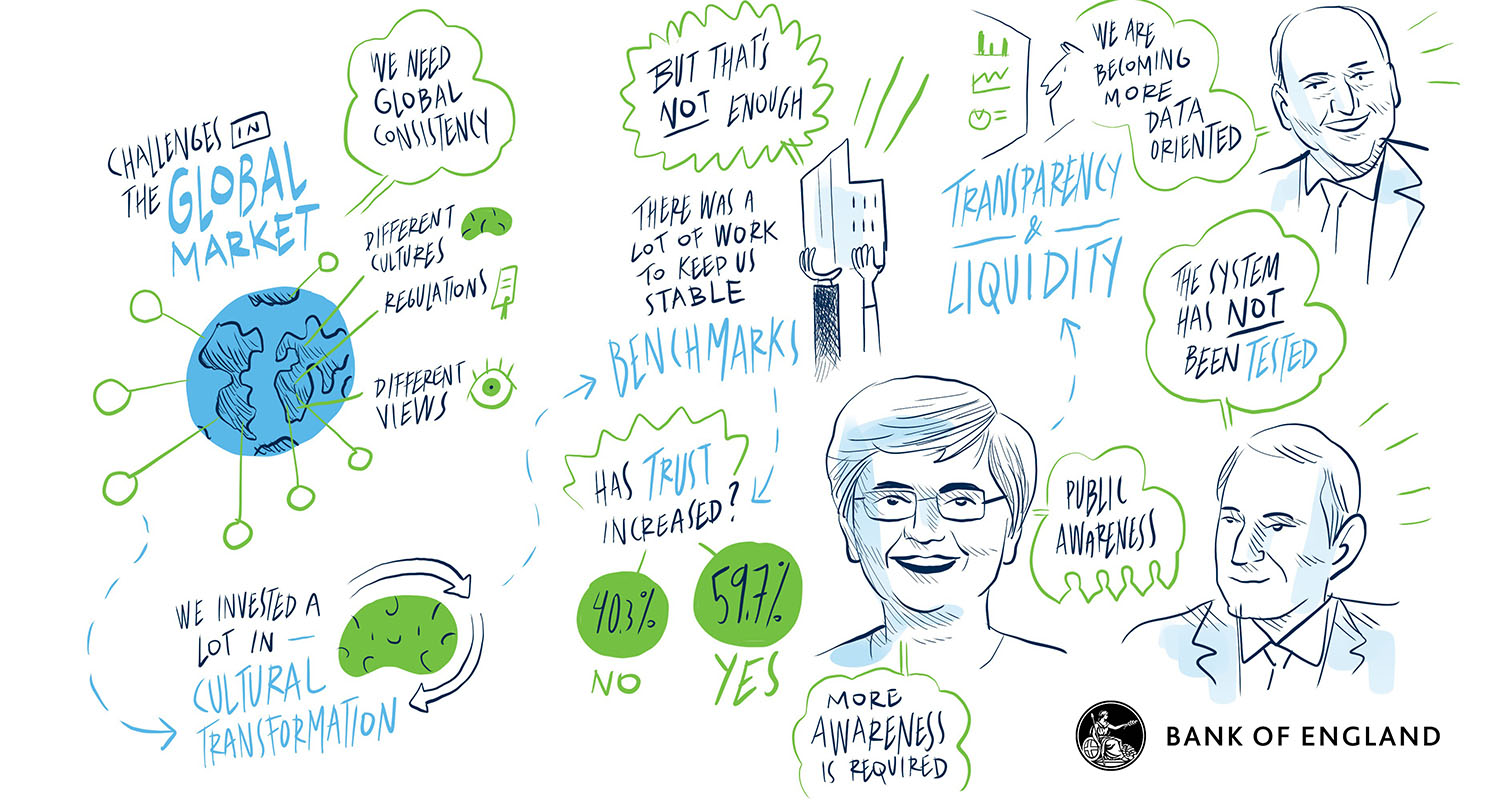 CHALLENGES IN
THE GLOBAL
MARKET
WE NEED
GLOBAL
CONSISTENCY
DIFFERENT
CULTURES
REGULATIONS
DIFFERENT
VIEWS
WE INVESTED A
LOT IN –
CULTURAL
TRANSFORMATION
BUT THAT'S
NOT ENOUGH
THERE WAS A
LOT OF WORK
TO KEEP US
STABLE
BENCHMARKS
HAS TRUST
INCREASED?
40.3%
NO
59.7%
YES
MORE
AWARENESS
IS REQUIRED
PUBLIC
AWARENESS
TRANSPARENCY
&
LIQUIDITY
WE ARE
BECOMING
MORE
DATA
ORIENTED
THE SYSTEM
HAS NOT
BEEN TESTED
BANK OF ENGLAND